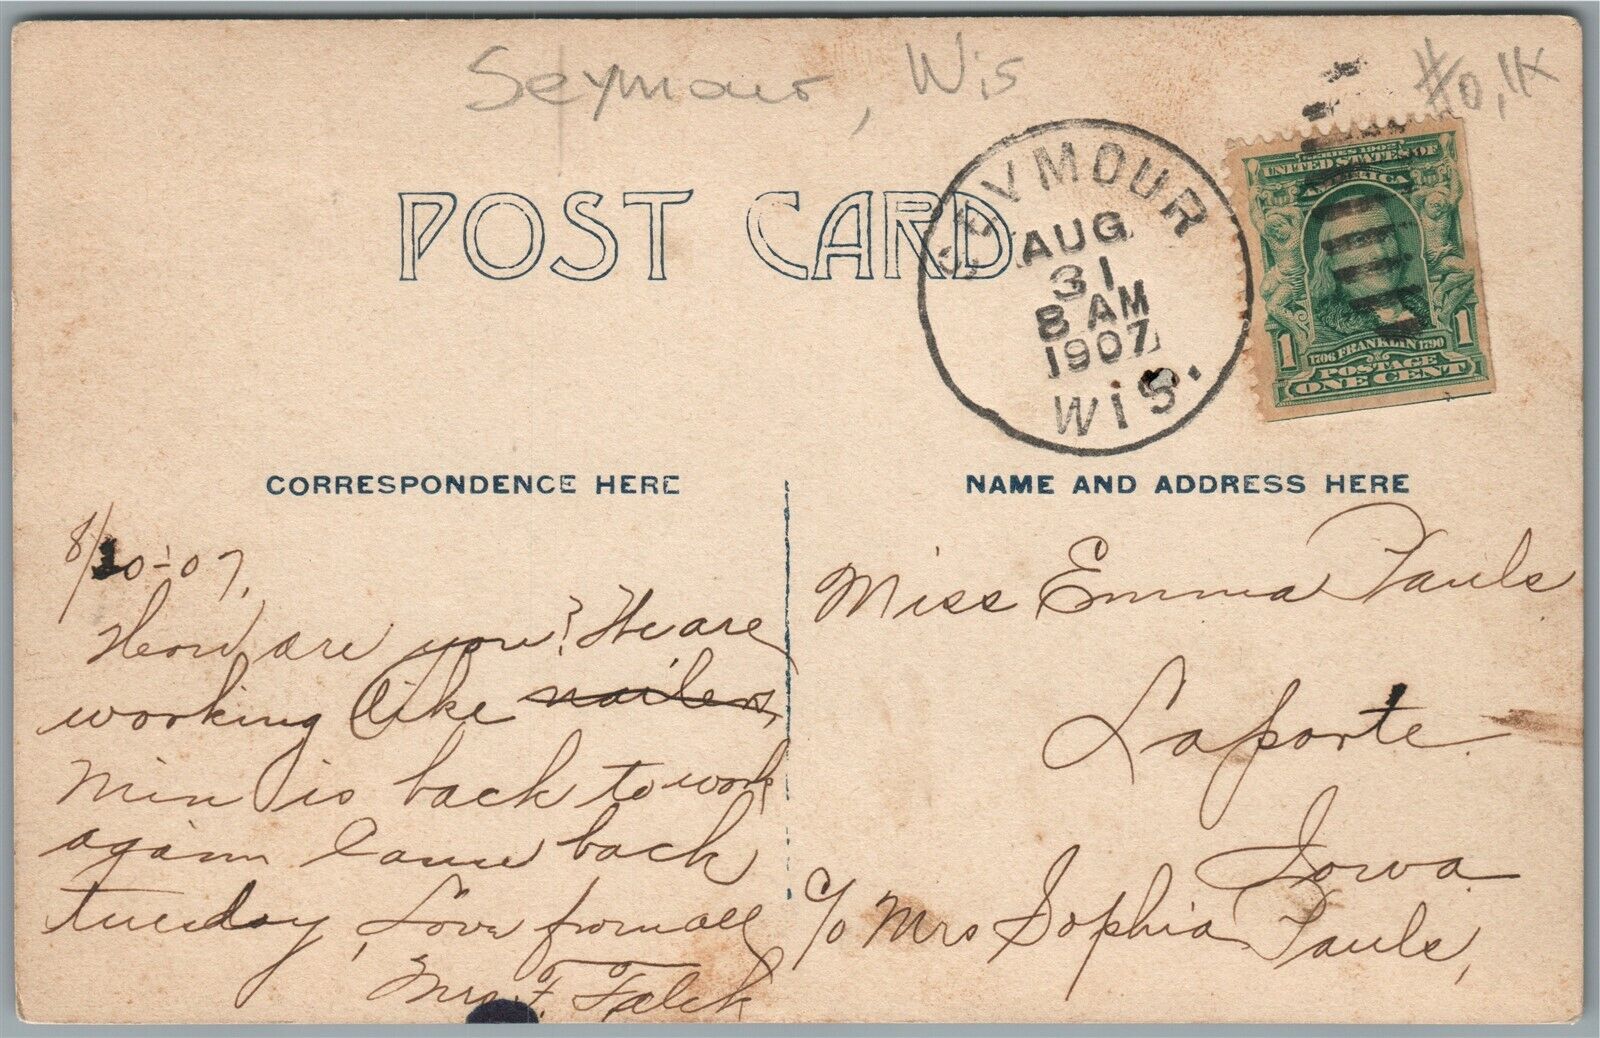 Seymour, Wis
POST CARD
SEYMOUR
AUG
31
8 AM
1907
WIS.
SERIES 1902
UNITED STATES OF
AMERICA
1 1
1706 FRANKLIN 1790
POSTAGE
ONE CENT
CORRESPONDENCE HERE
8/30-07.
How are you? We are
working like nailers,
Min is back to work
again came back
tuesday, Love from all
Mrs. F. Falck
NAME AND ADDRESS HERE
Miss Emma Pauls
Laporte
Iowa
c/o Mrs Sophia Pauls,